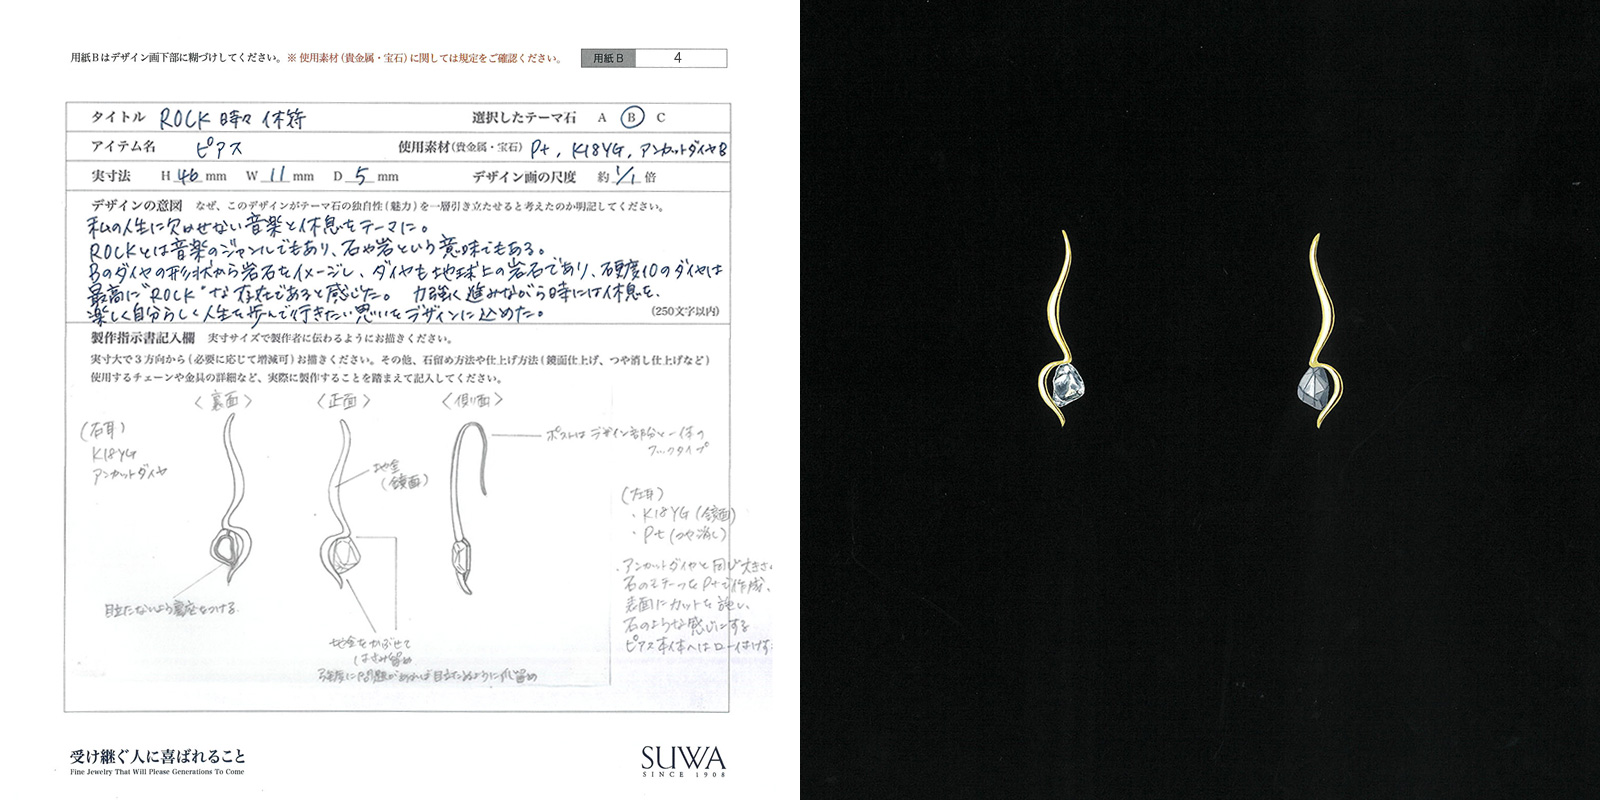 用紙Bはデザイン画下部に糊づけしてください。※ 使用素材(貴金属・宝石)に関しては規定をご確認ください。 用紙B 4
タイトル ROCK 時々 休符 選択したテーマ石 A B C
アイテム名 ピアス 使用素材(貴金属・宝石) Pt, K18YG, アンカットダイヤB
実寸法 H 46 mm W 11 mm D 5 mm デザイン画の尺度 約 1/1 倍
デザインの意図 なぜ、このデザインがテーマ石の独自性(魅力)を一層引き立たせると考えたのか明記してください。
私の人生に欠かせない音楽と休息をテーマに。
ROCKとは音楽のジャンルでもあり、石や岩という意味でもある。
Bのダイヤの形状から岩石をイメージし、ダイヤも地球上の岩石であり、硬度10のダイヤは
最高に"ROCK"な存在であると感じた。 力強く進みながら時には休息を、
楽しく自分らしく人生を歩んで行きたい思いをデザインに込めた。
(250文字以内)
製作指示書記入欄 実寸サイズで製作者に伝わるようにお描きください。
実寸大で3方向から(必要に応じて増減可)お描きください。その他、石留め方法や仕上げ方法(鏡面仕上げ、つや消し仕上げなど)
使用するチェーンや金具の詳細など、実際に製作することを踏まえて記入してください。
〈裏面〉 〈正面〉 〈側面〉
(右耳)
K18YG
アンカットダイヤ
ポストはデザイン部分と一体の
フックタイプ
地金
(鏡面)
(左耳)
・K18YG(鏡面)
・Pt(つや消し)
・アンカットダイヤと同じ大きさ
石のモチーフをPtで作成、
表面にカットを施し、
石のような感じにする
ピアス本体へはロー付けす
目立たないよう裏座をつける
地金をかぶせて
はさみ留め
強度に問題があれば目立たぬように爪留め
受け継ぐ人に喜ばれること
Fine Jewelry That Will Please Generations To Come
SUWA
SINCE 1908